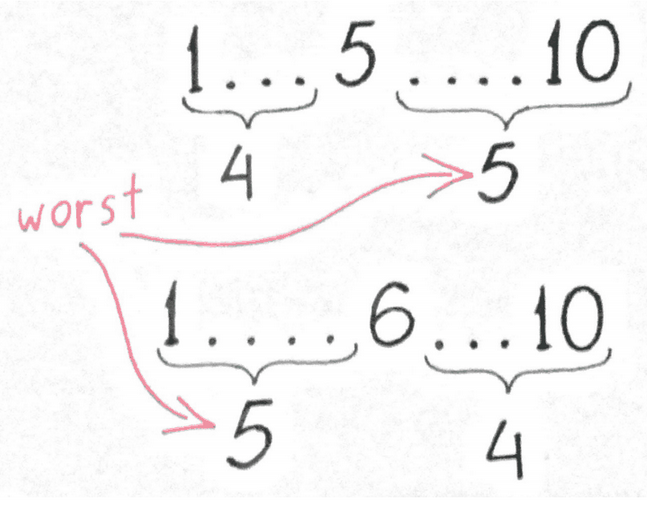 1 . . . 5 . . . . 10
4 5
worst
1 . . . . 6 . . . 10
5 4